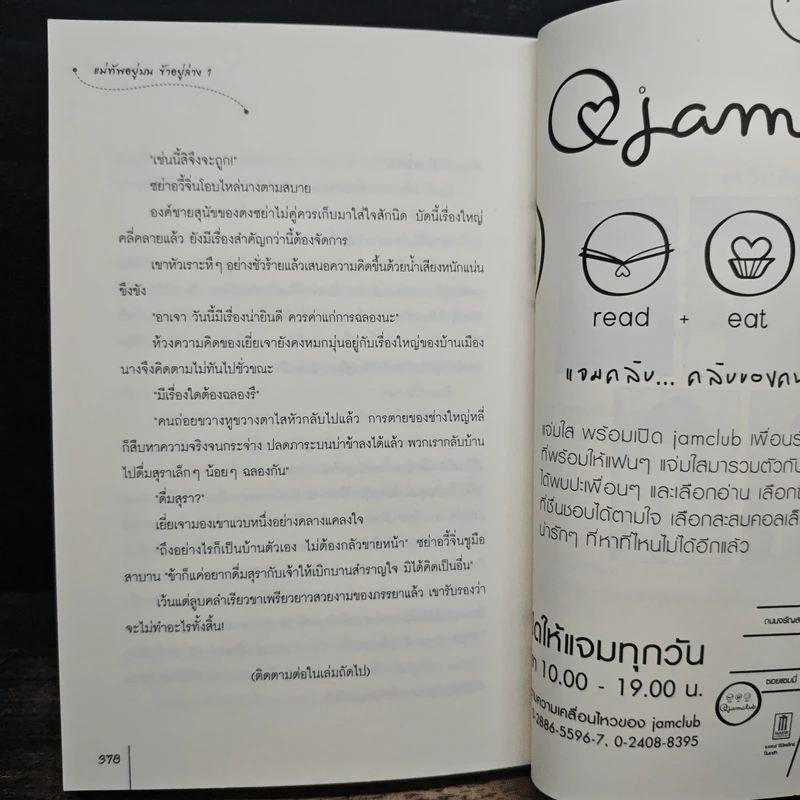 แม่ทัพอยู่บน ข้าอยู่ล่าง 1
"เช่นนี้สิจึงจะถูก!"
ซย่าอวี้จิ่นโอบไหล่นางตามสบาย
องค์ชายสุนัขของตงซย่าไม่คู่ควรเก็บมาใส่ใจสักนิด บัดนี้เรื่องใหญ่
คลี่คลายแล้ว ยังมีเรื่องสำคัญกว่านี้ต้องจัดการ
เขาหัวเราะหึๆ อย่างชั่วร้ายแล้วเสนอความคิดขึ้นด้วยน้ำเสียงหนักแน่น
ขึงขัง
"อาเจา วันนี้มีเรื่องน่ายินดี ควรค่าแก่การฉลองนะ"
ห้วงความคิดของเยี่ยเจายังคงหมกมุ่นอยู่กับเรื่องใหญ่ของบ้านเมือง
นางจึงคิดตามไม่ทันไปชั่วขณะ
"มีเรื่องใดต้องฉลองรึ"
"คนถ่อยขวางหูขวางตาไสหัวกลับไปแล้ว การตายของช่างใหญ่หลี่
ก็สืบหาความจริงจนกระจ่าง ปลดภาระบนบ่าข้าลงได้แล้ว พวกเรากลับบ้าน
ไปดื่มสุราเล็กๆ น้อยๆ ฉลองกัน"
"ดื่มสุรา?"
เยี่ยเจามองเขาแวบหนึ่งอย่างคลางแคลงใจ
"ถึงอย่างไรก็เป็นบ้านตัวเอง ไม่ต้องกลัวขายหน้า" ซย่าอวี้จิ่นชูมือ
สาบาน "ข้าก็แค่อยากดื่มสุรากับเจ้าให้เบิกบานสำราญใจ มิได้คิดเป็นอื่น"
เว้นแต่ลูบคลำเรียวขาเพรียวยาวสวยงามของภรรยาแล้ว เขารับรองว่า
จะไม่ทำอะไรทั้งสิ้น!
(ติดตามต่อในเล่มถัดไป)
378
@jam
read + eat
แจมคลับ... คลับของคน
แจ่มใส พร้อมเปิด jamclub เพื่อนรั
ที่พร้อมให้แฟนๆ แจ่มใสมารวมตัวกัน
ได้พบปะเพื่อนๆ และเลือกอ่าน เลือก
ที่ชื่นชอบได้ตามใจ เลือกสะสมคอลเล็
น่ารักๆ ที่หาที่ไหนไม่ได้อีกแล้ว
ให้แจมทุกวัน
10.00 - 19.00 น.
ความเคลื่อนไหวของ jamclub
-2886-5596-7, 0-2408-8395
@jamclub
ถนนจรัญส
ซอยแซมมี่